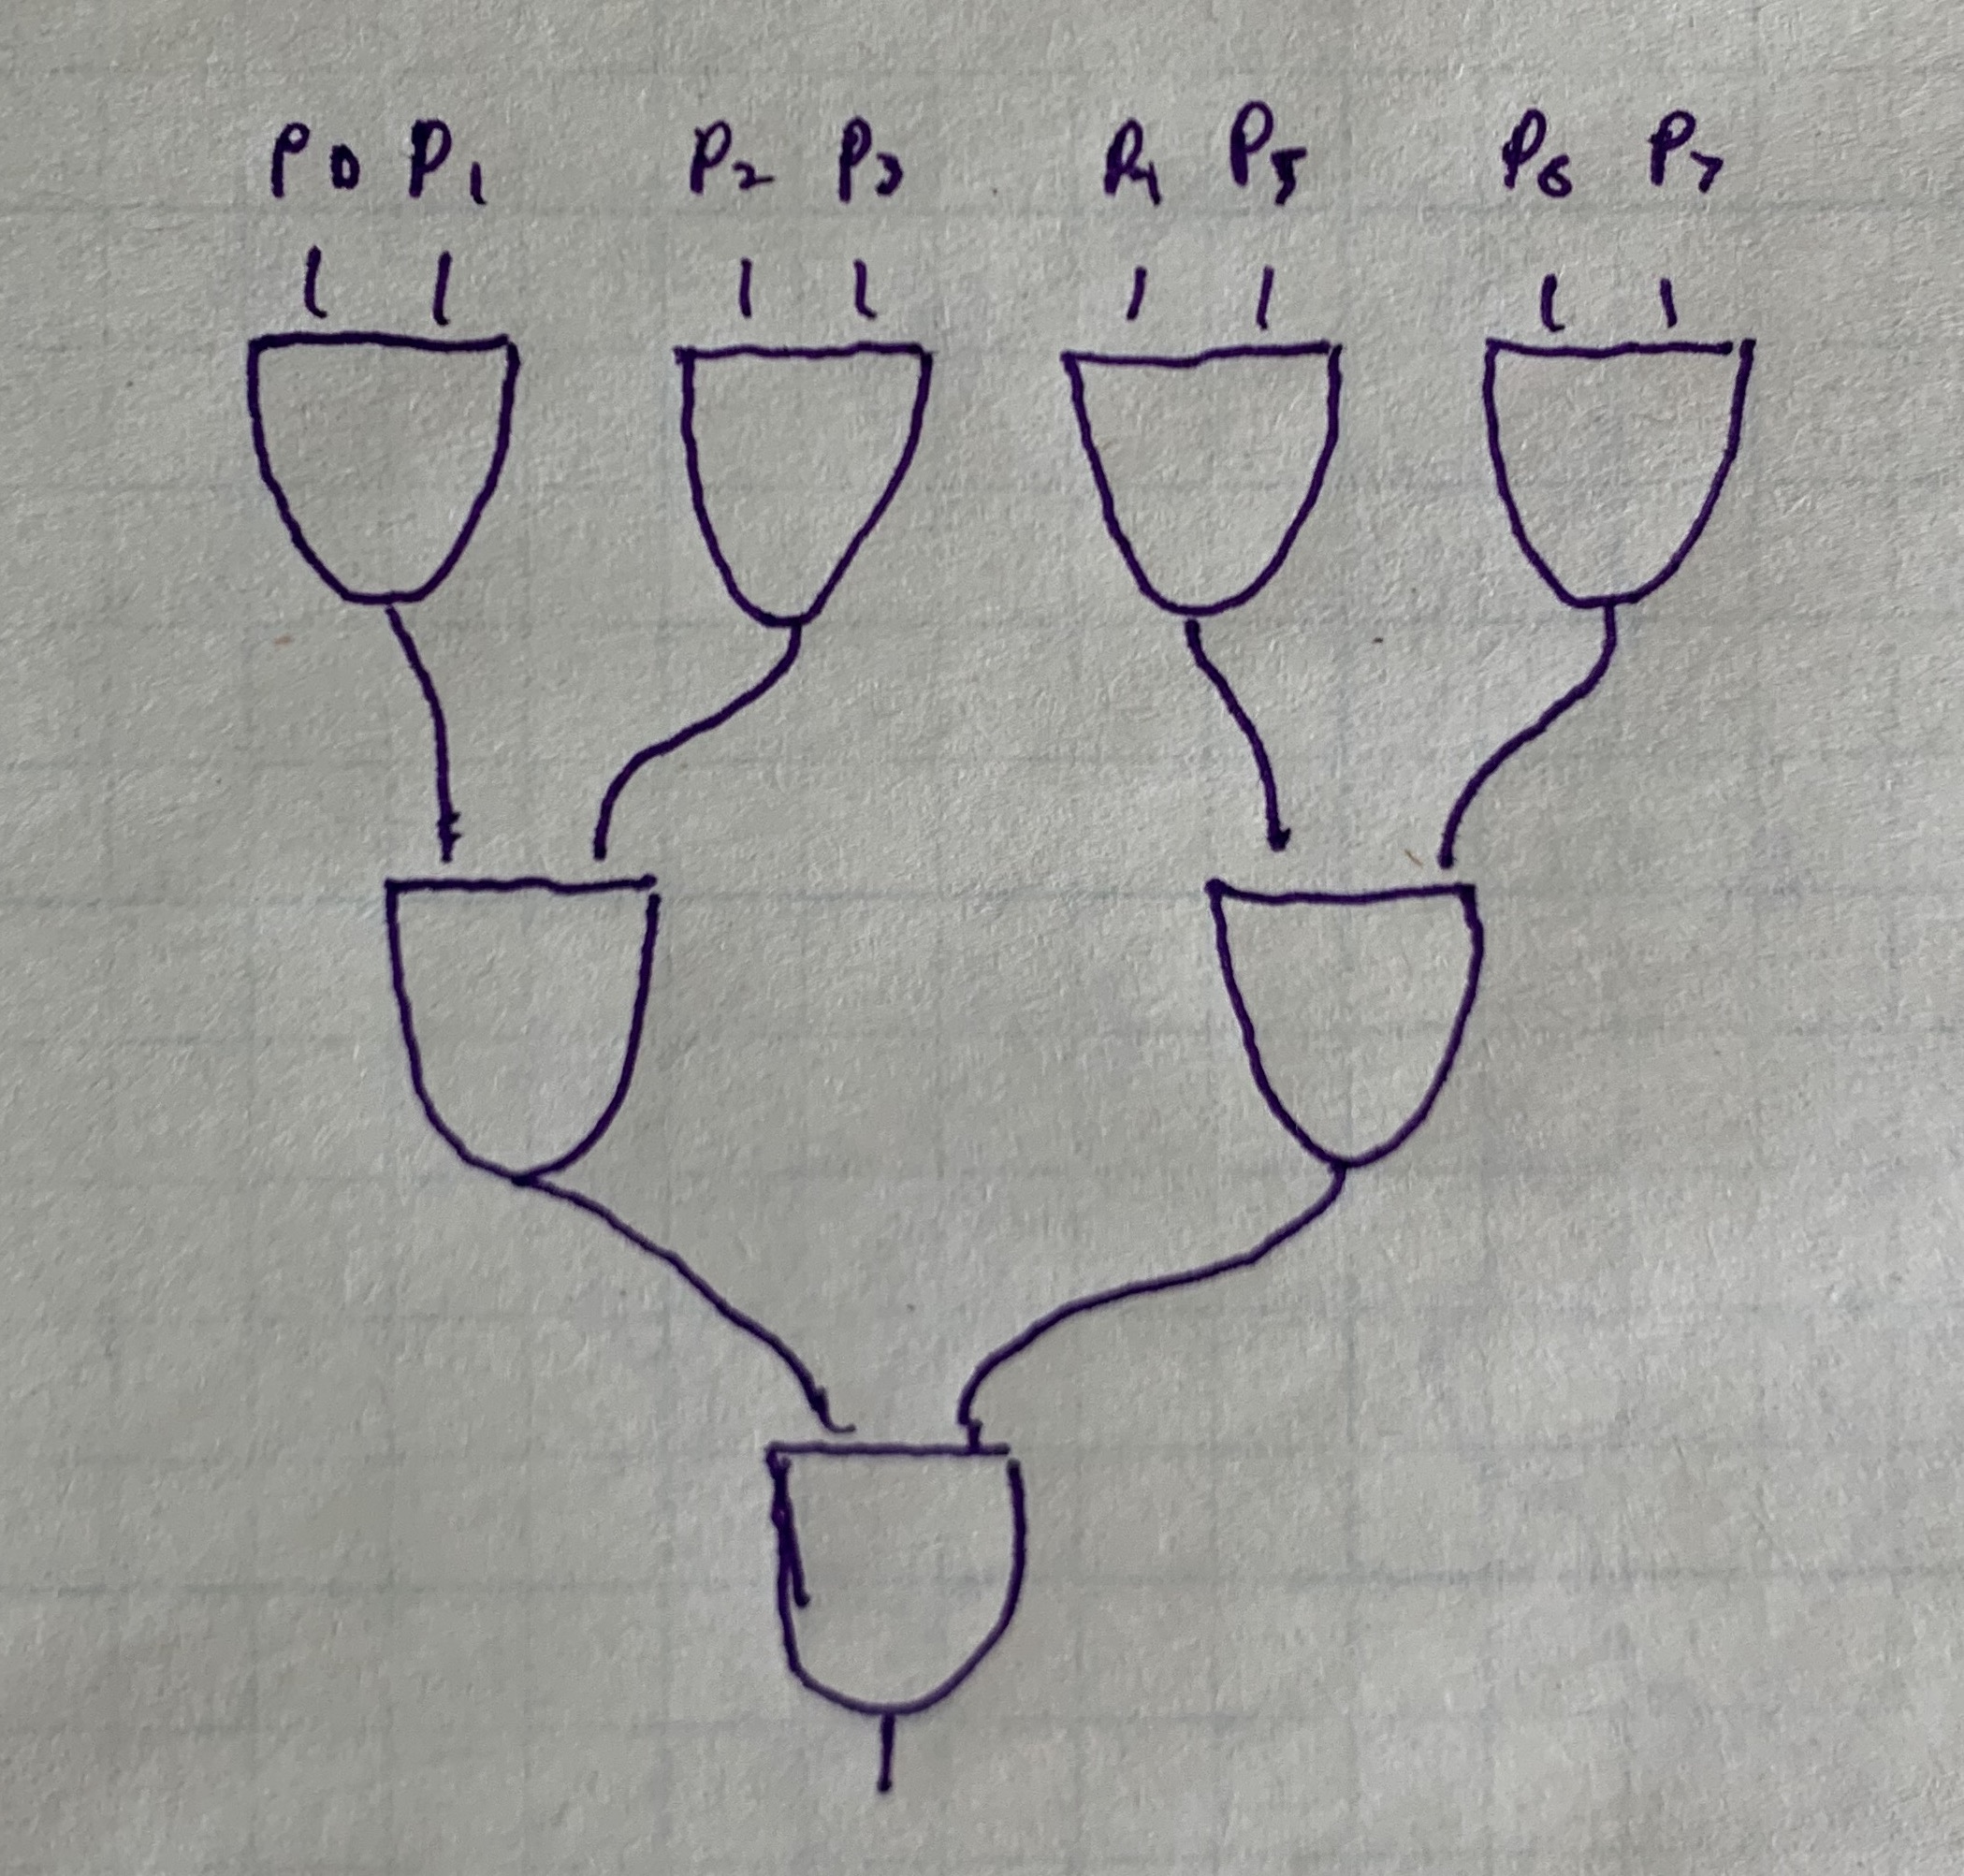 P0 P1 P2 P3 P4 P5 P6 P7